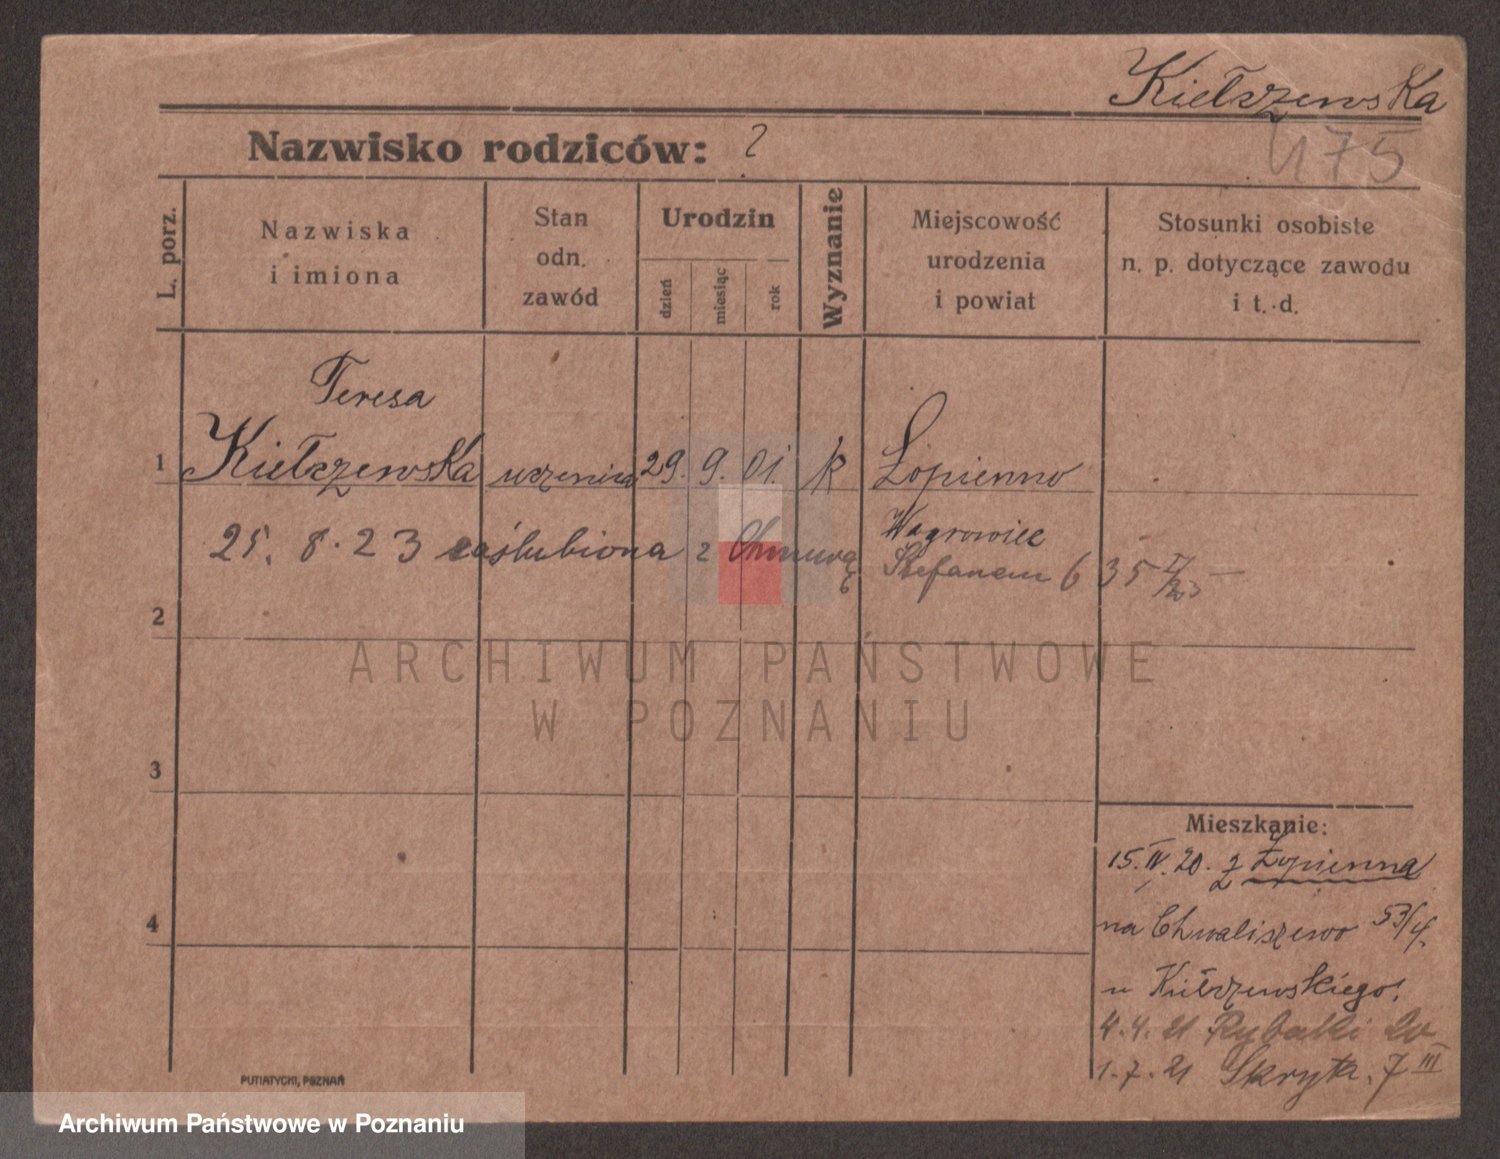 Kiełszewska
1175
Nazwisko rodziców: ?
L. porz.
Nazwiska
i imiona
Stan
odn.
zawód
Urodzin
dzień
miesiąc
rok
Wyznanie
Miejscowość
urodzenia
i powiat
Stosunki osobiste
n. p. dotyczące zawodu
i t. d.
Teresa
1 Kiełszewska uczenica 29. 9. 01. k Łopienno
Wągrowiec
25. 8. 23 zaślubiona z Chmurą Stefanem 635 I/23
2
ARCHIWUM PAŃSTWOWE
W POZNANIU
3
4
Mieszkanie:
15. IV. 20. z Łopienna
na Chwaliszewo 53/4.
u Kiełszewskiego.
4. 4. 21 Rybaki 20
1. 7. 21 Skryta. 7 III
PUTIATYCKI, POZNAŃ
Archiwum Państwowe w Poznaniu